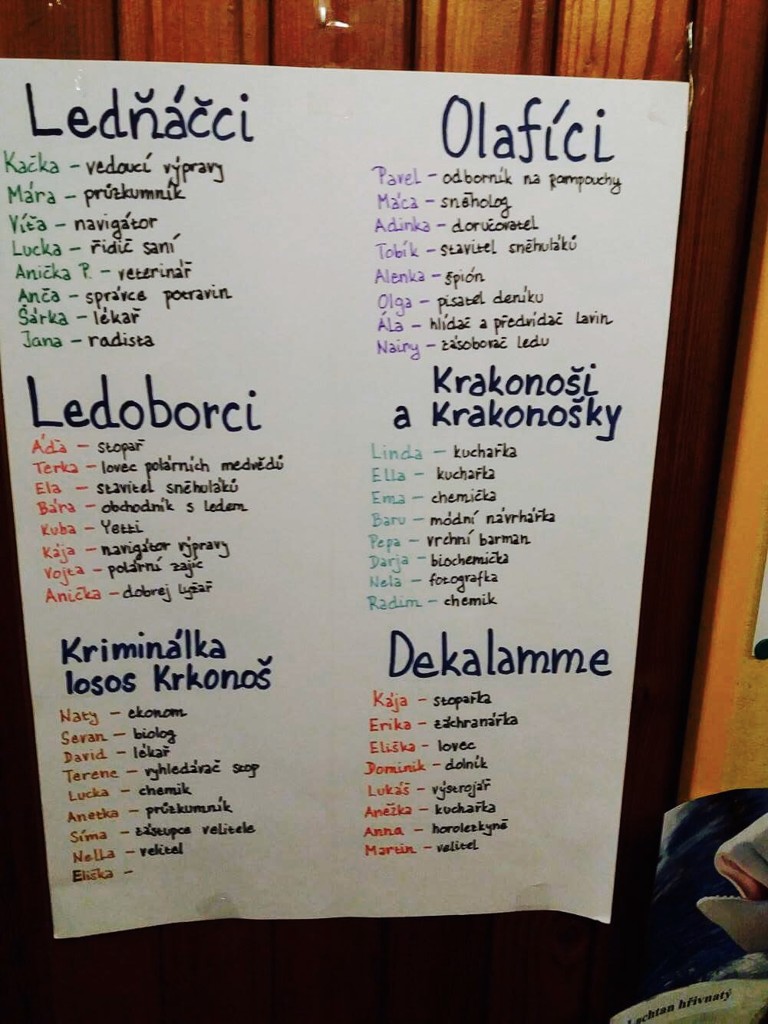 Ledňáčci
Kačka - vedoucí výpravy
Mára - průzkumník
Víťa - navigátor
Lucka - řidič saní
Anička P. - veterinář
Anča - správce potravin
Šárka - lékař
Jana - radista
Olafíci
Pavel - odborník na rampouchy
Máca - sněholog
Adinka - doručovatel
Tobík - stavitel sněhuláků
Alenka - špión
Olga - pisatel deníku
Ála - hlídač a předvídač lavin
Nainy - zásobovač ledu
Ledoborci
Áďa - stopař
Terka - lovec polárních medvědů
Ela - stavitel sněhuláků
Bára - obchodník s ledem
Kuba - Yetti
Kája - navigátor výpravy
Vojta - polární zajíc
Anička - dobrej lyžař
Krakonoši
a Krakonošky
Linda - kuchařka
Ella - kuchařka
Ema - chemička
Baru - módní návrhářka
Pepa - vrchní barman
Darja - biochemička
Nela - fotografka
Radim - chemik
Kriminálka
losos Krkonoš
Naty - ekonom
Sevan - biolog
David - lékař
Terene - vyhledávač stop
Lucka - chemik
Anetka - průzkumník
Síma - zástupce velitele
Nella - velitel
Eliška -
Dekalamme
Kája - stopařka
Erika - záchranářka
Eliška - lovec
Dominik - dolník
Lukáš - výstrojář
Anežka - kuchařka
Anna - horolezkyně
Martin - velitel
Lachtan hřivnatý